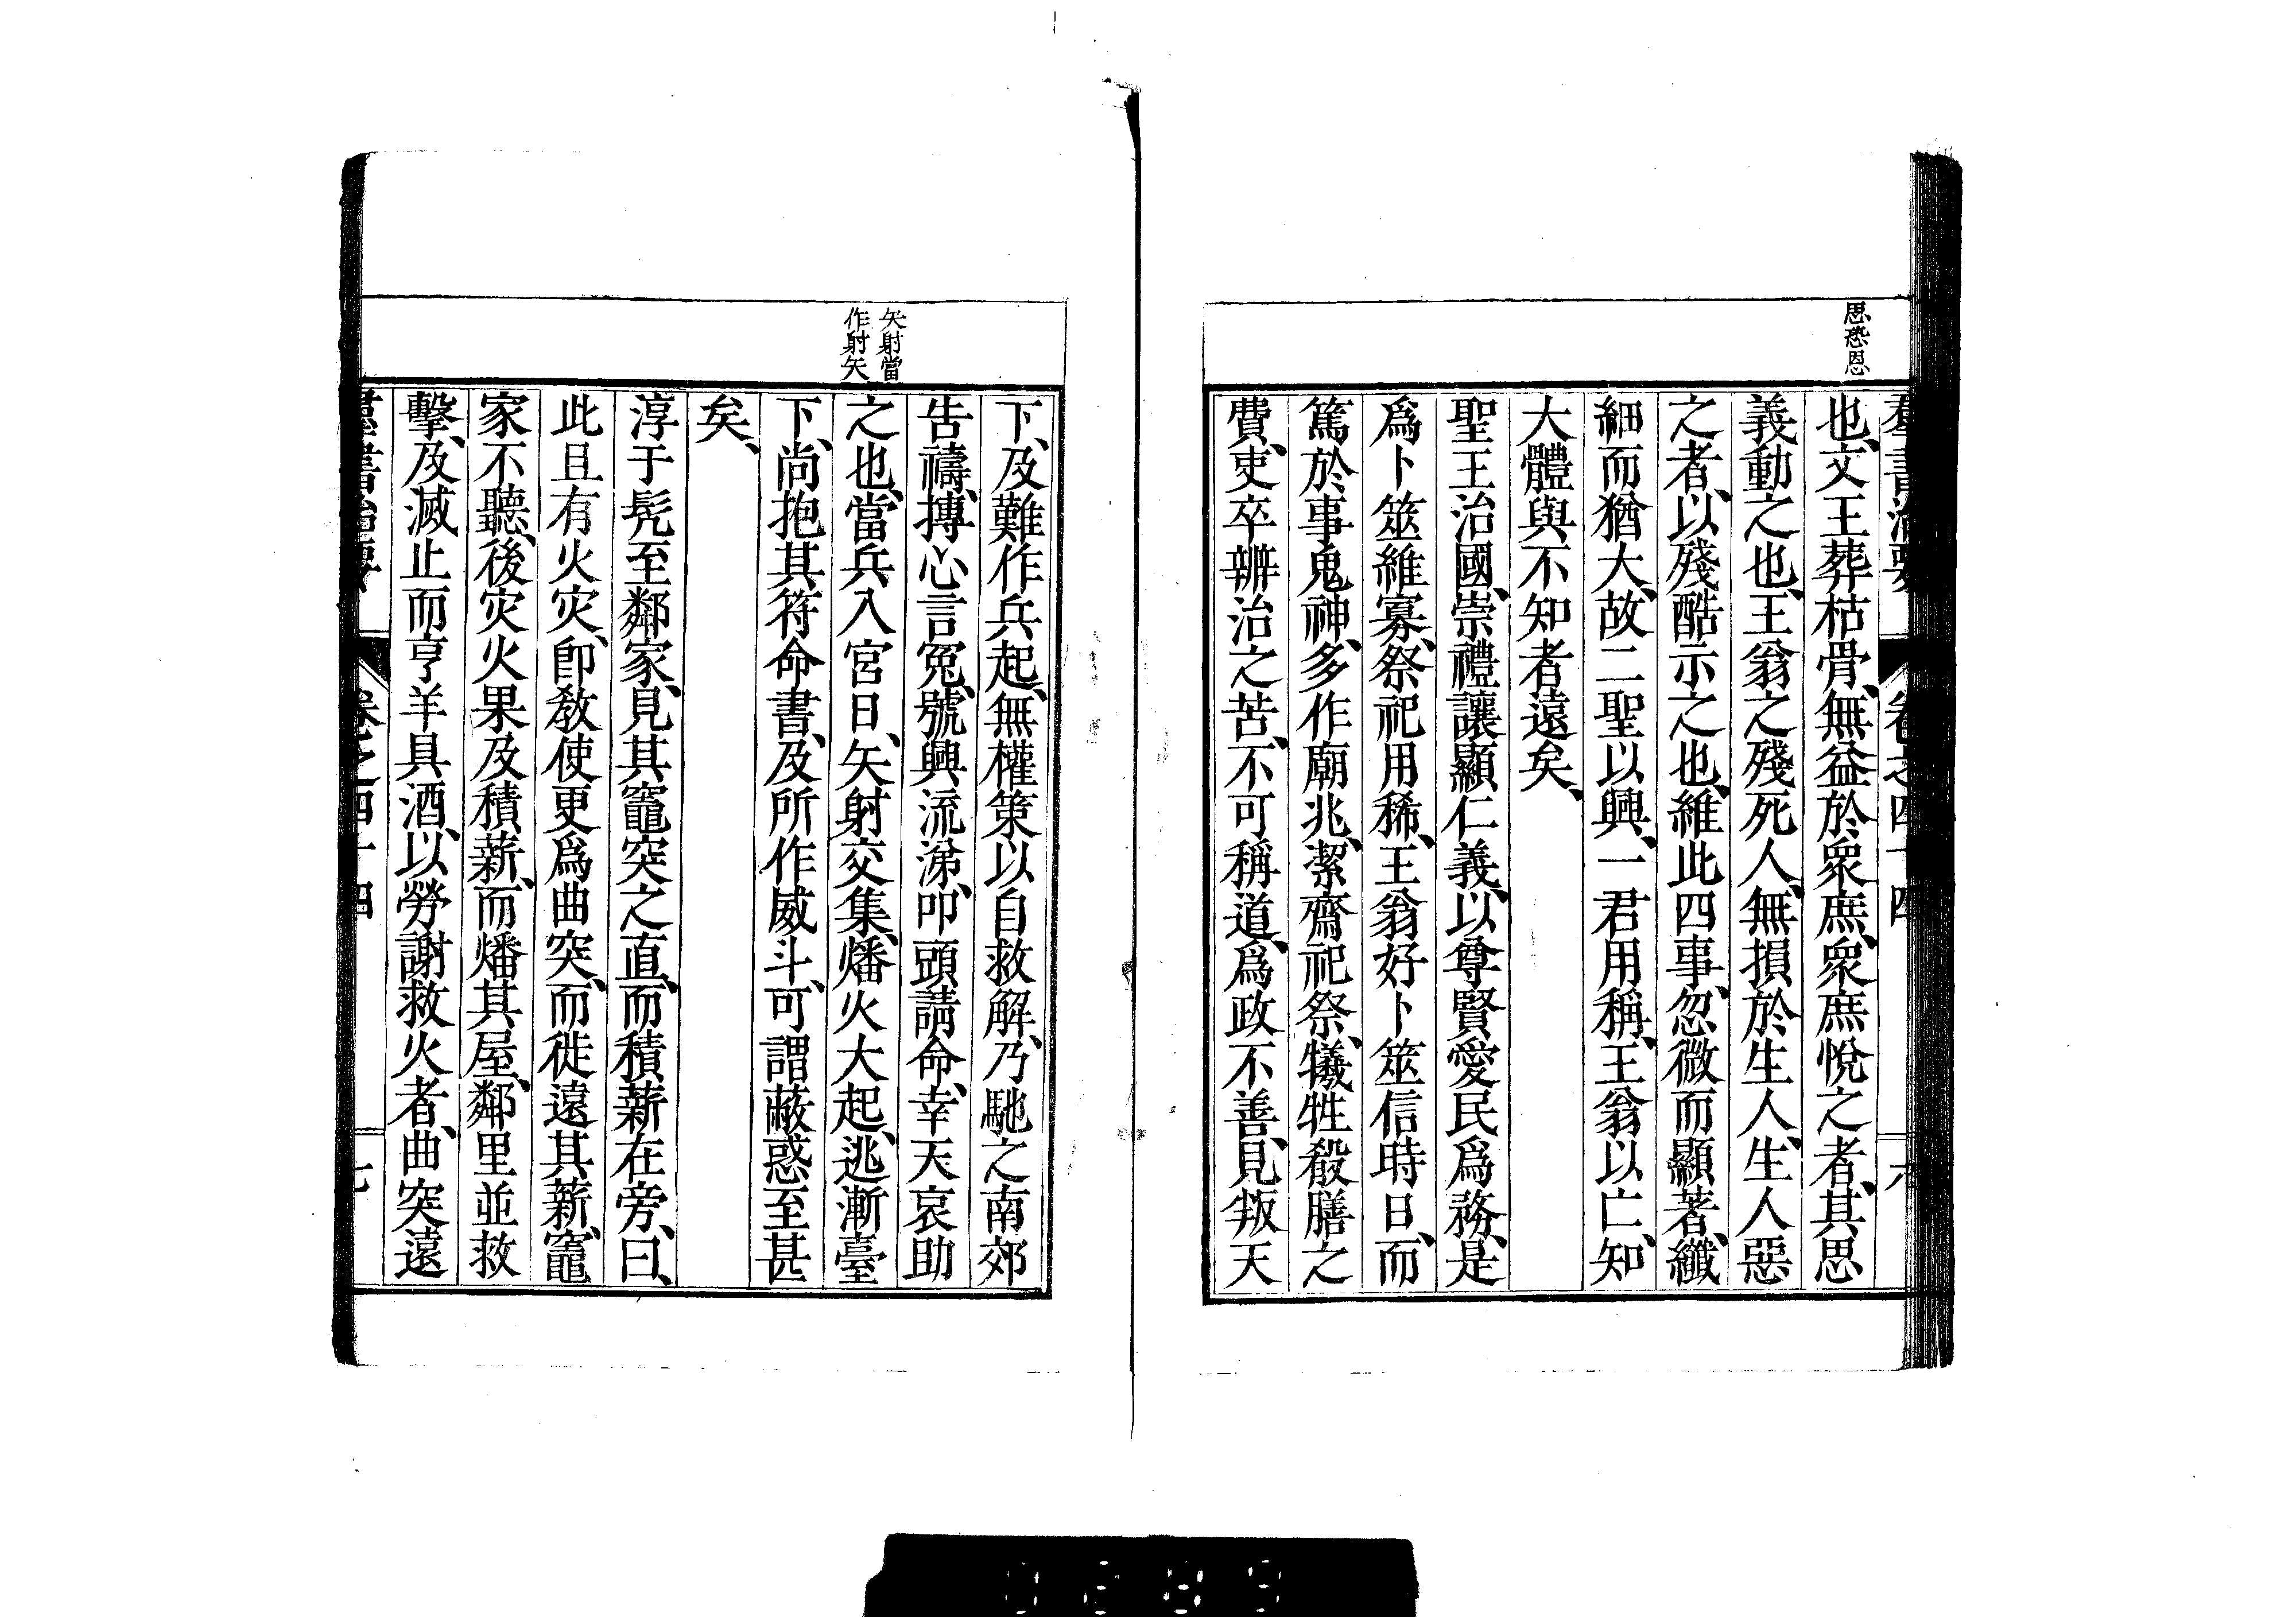 思恐恩
羣書治要 卷之四十四 六
也、文王葬枯骨、無益於衆庶、衆庶悅之者、其思
義動之也、王翁之殘死人、無損於生人、生人惡
之者、以殘酷示之也、維此四事、忽微而顯著、纖
細而猶大、故二聖以興、一君用稱、王翁以亡、知
大體與不知者遠矣、
聖王治國、崇禮讓顯仁義、以尊賢愛民爲務、是
爲卜筮維寡、祭祀用稀、王翁好卜筮信時日、而
篤於事鬼神、多作廟兆、潔齋祀祭、犧牲殽膳之
費、吏卒辨治之苦、不可稱道、爲政不善、見叛天
矢射當
作射矢
下、及難作兵起、無權策以自救解、乃馳之南郊
告禱、搏心言冤、號興流涕、叩頭請命、幸天哀助
之也、當兵入宮日、矢射交集、燔火大起、逃漸臺
下、尚抱其符命書、及所作威斗、可謂蔽惑至甚
矣、
淳于髡至鄰家、見其竈突之直、而積薪在旁、曰、
此且有火灾、卽敎使更爲曲突、而徙遠其薪、竈
家不聽、後灾火果及積薪、而燔其屋、鄰里並救
擊、及滅止而亨羊具酒、以勞謝救火者、曲突遠
羣書治要 卷之四十四 七